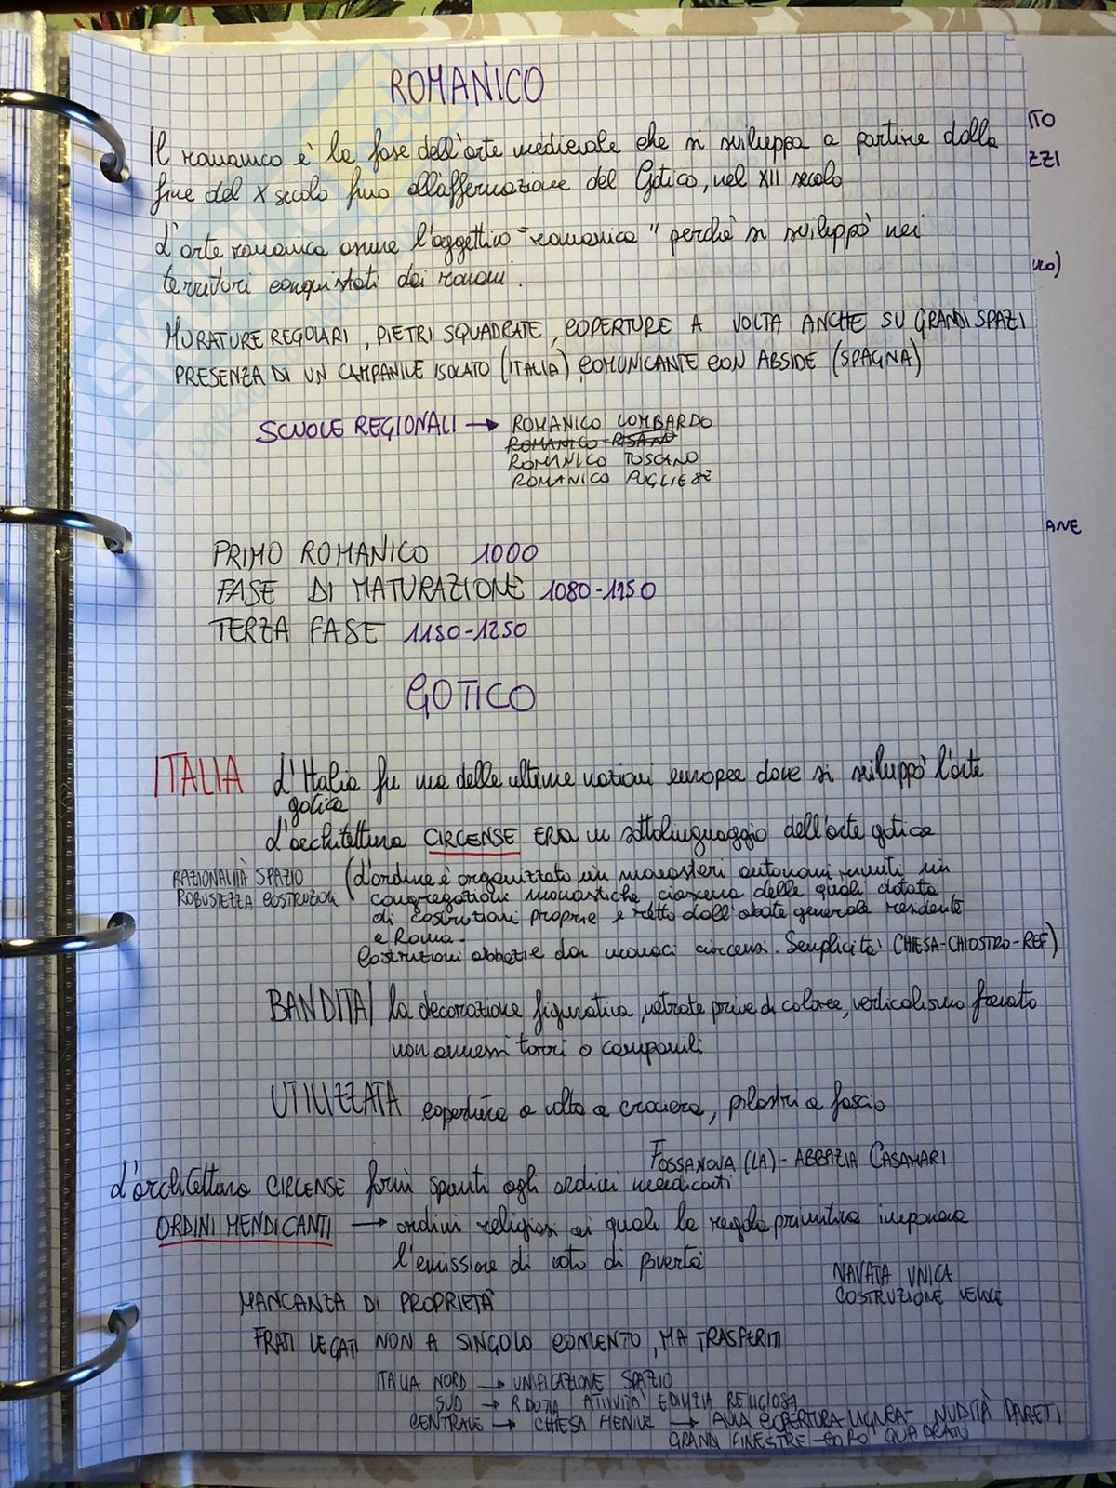 ROMANICO
Il romanico è la fase dell'arte medievale che si sviluppa a partire dalla
fine del X secolo fino all'affermazione del Gotico, nel XII secolo
L'arte romanica assume l'aggettivo "romanica" perchè si sviluppò nei
territori conquistati dai romani.
MURATURE REGOLARI, PIETRI SQUADRATE, COPERTURE A VOLTA ANCHE SU GRANDI SPAZI
PRESENZA DI UN CAMPANILE ISOLATO (ITALIA), COMUNICANTE CON ABSIDE (SPAGNA)
SCUOLE REGIONALI → ROMANICO LOMBARDO
ROMANICO PISANO
ROMANICO TOSCANO
ROMANICO PUGLIESE
PRIMO ROMANICO 1000
FASE DI MATURAZIONE 1080-1150
TERZA FASE 1150-1250
GOTICO
ITALIA L'Italia fu una delle ultime nazioni europee dove si sviluppò l'arte
gotica
L'architettura CIRCENSE ERA un sottolinguaggio dell'arte gotica
RAZIONALITÀ SPAZIO (L'ordine è organizzato in monasteri autonomi riuniti in
ROBUSTEZZA COSTRUZIONI congregazioni monastiche ciascuna delle quali dotata
di costituzioni proprie e retta dall'abate generale residente
a Roma.
Costruzioni abbazie dai monaci circensi. Semplicità: CHIESA-CHIOSTRO-REF)
BANDITA/ la decorazione figurativa, vetrate prive di colore, verticalismo frenato
non ammessi torri o campanili
UTILIZZATA copertura a volta a crociera, pilastri a fascio
FOSSANOVA (LA) - ABBAZIA CASAMARI
L'architettura CIRCENSE fornì spunti agli ordini mendicanti
ORDINI MENDICANTI → ordini religiosi ai quali la regola primitiva imponeva
l'emissione di voto di povertà
NAVATA UNICA
COSTRUZIONE VELOCE
MANCANZA DI PROPRIETÀ
FRATI LEGATI NON A SINGOLO CONVENTO, MA TRASFERITI
ITALIA NORD → UNIFICAZIONE SPAZIO
SUD → RIDOTTA ATTIVITÀ EDILIZIA RELIGIOSA
CENTRALE → CHIESA → AULA COPERTURA LIGNEA - NUDITÀ PARETI
GRANDI FINESTRE - CORO QUADRATO
ITO
ZZI
ANE